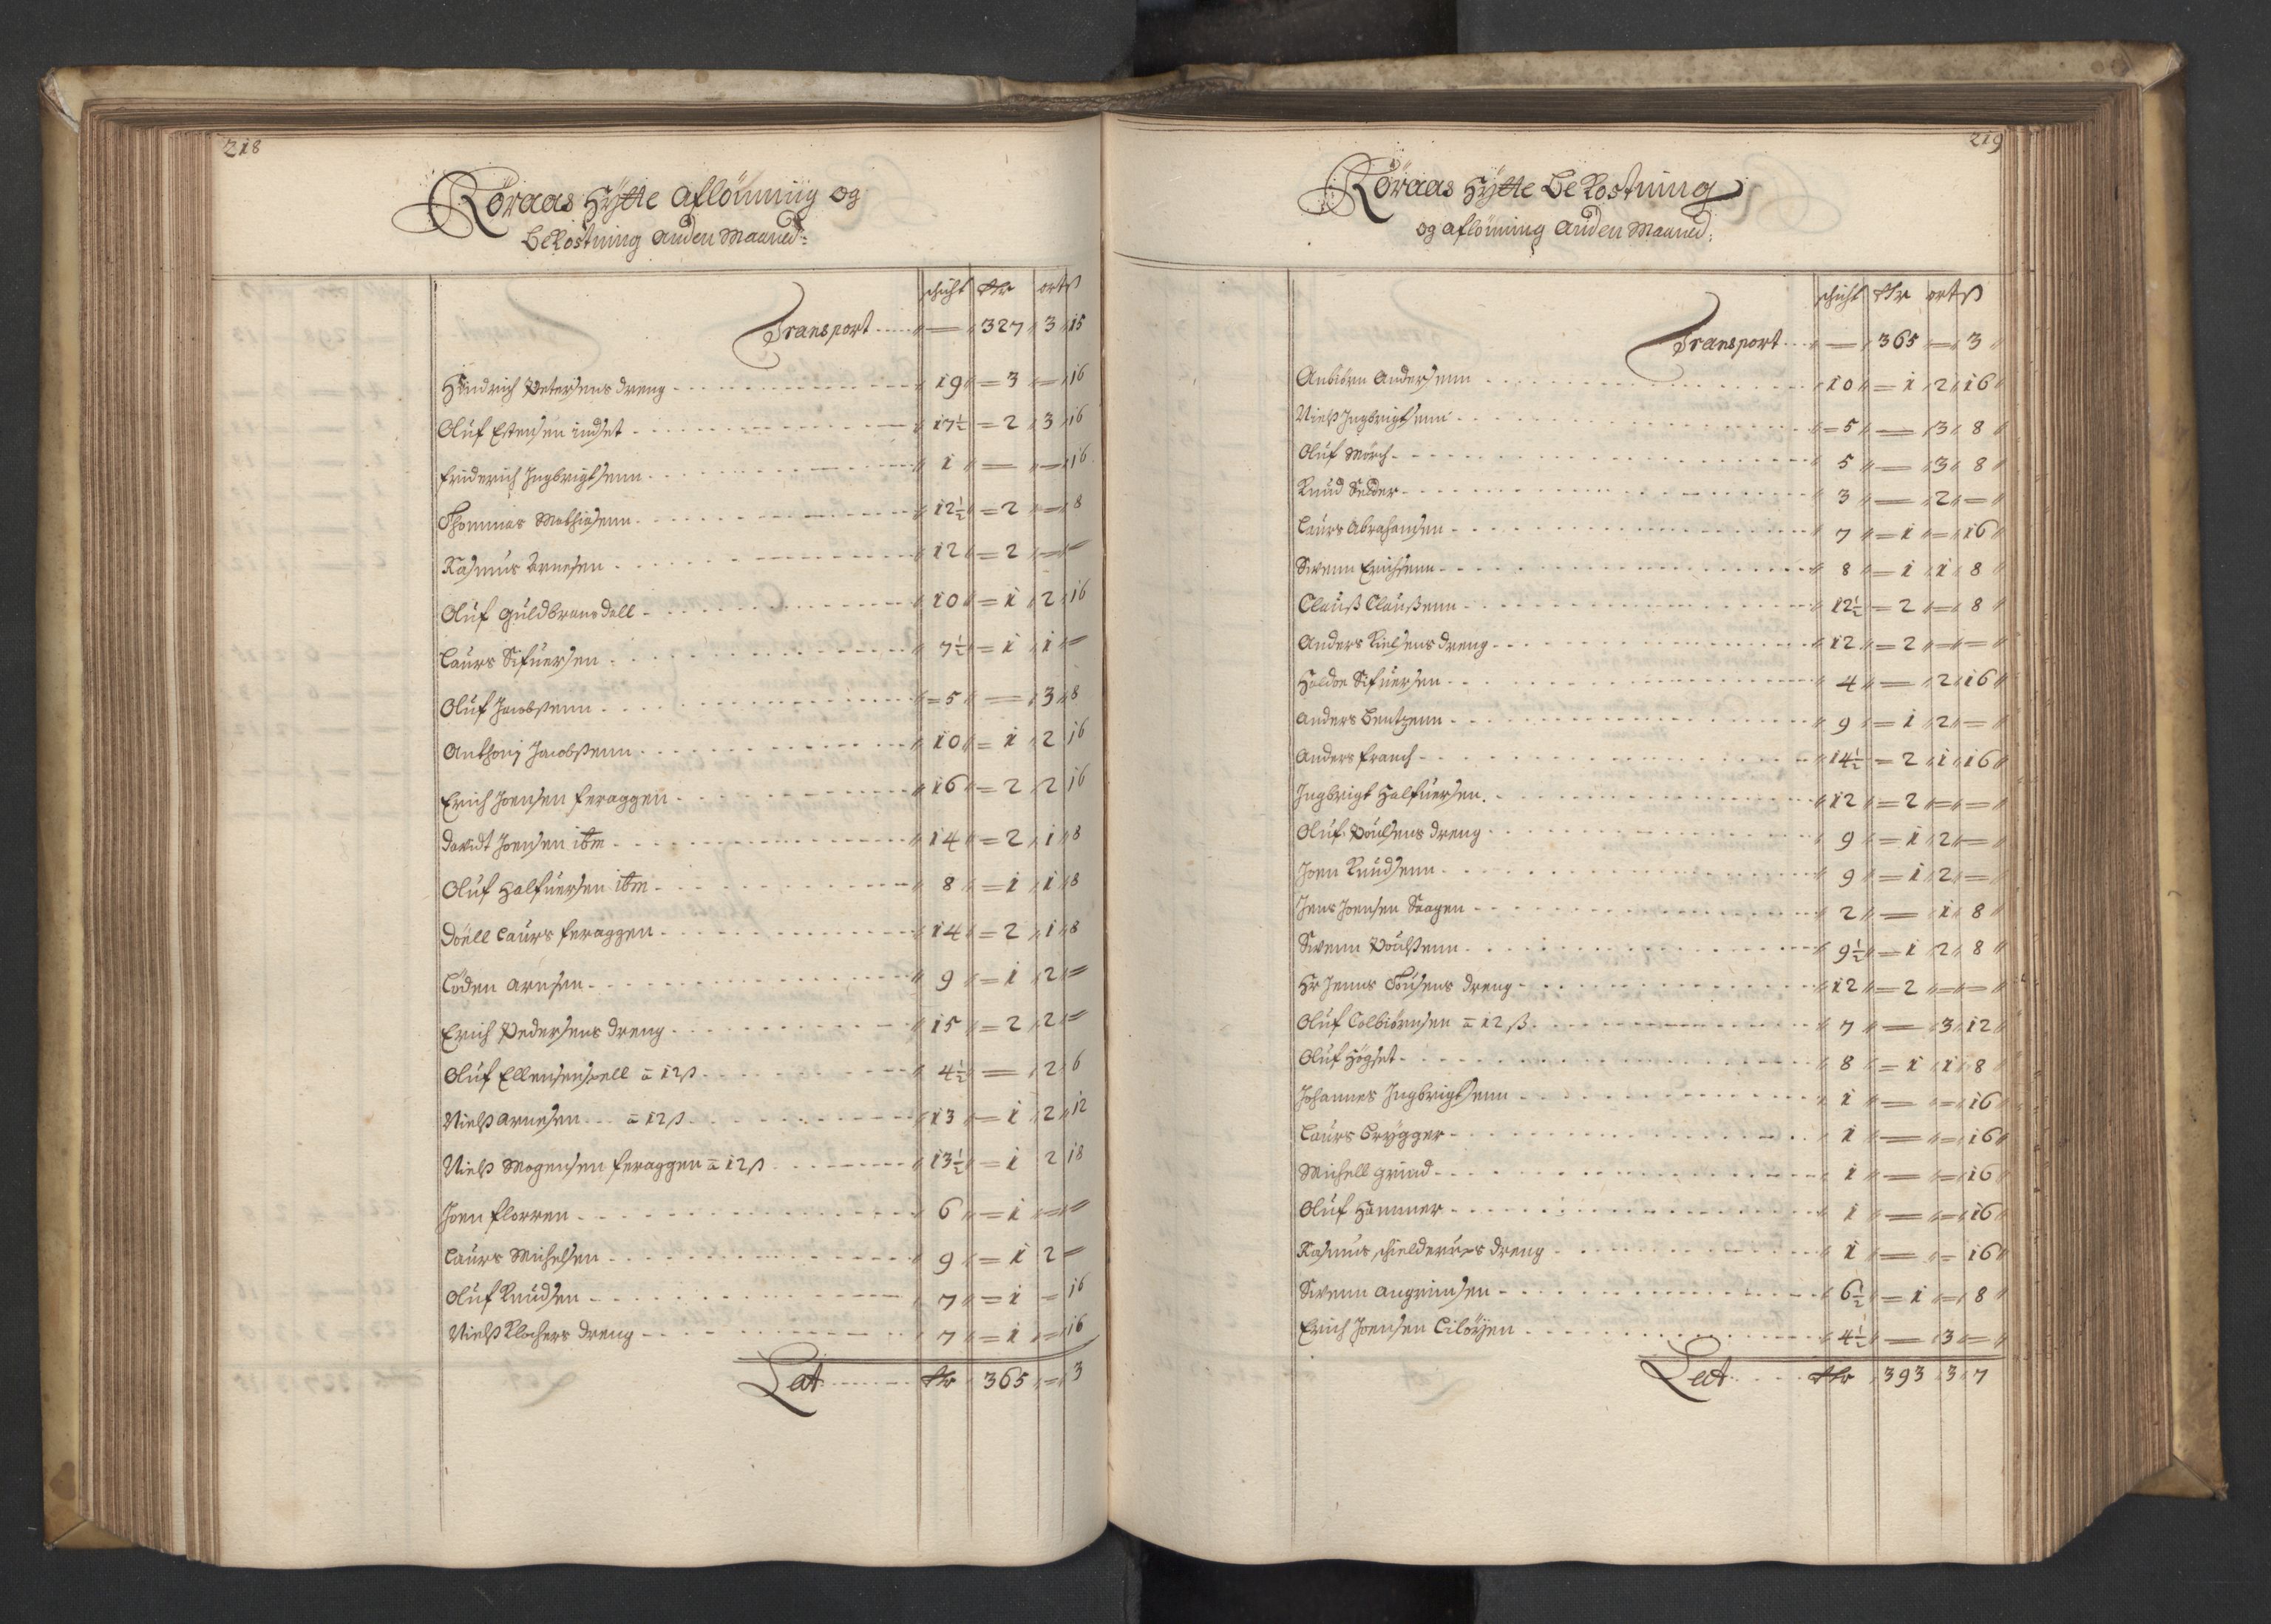 218
Röraas Hÿtte Aflönning og
Bekostning Anden Maaned:
schicht Rdr ort ß
Transport — 327 3 15
Hendrich Petersens dreng 19 3 — 16
Oluf Estensen indset 17½ 2 3 16
Friderich Ingbrigtsenn 1 — — 16
Thommas Mathiasenn 12½ 2 — 8
Rasmus Arnesen 12 2 — —
Oluf Guldbransdall 10 1 2 16
Laurs Sifuersen 7½ 1 1 —
Oluf Jacobsenn 5 — 3 8
Anthonj Jacobsenn 10 1 2 16
Erich Joensen feraggen 16 2 2 16
Davidt Joensen itm 14 2 1 8
Oluf Halfuersen itm 8 1 1 8
Döll Laurs feraggen 14 2 1 8
Loden Arnesen 9 1 2 —
Erich Pedersens dreng 15 2 2 —
Oluf Ellensen à 12 ß 4½ — 2 6
Nielß Arnesen à 12 ß 13 1 2 12
Nielß Mogensen feraggen à 12 ß 13½ 1 2 18
Joen florren 6 1 — —
Laurs Michelsen 9 1 2 —
Oluf Knudsen 7 1 — 16
Nielß Klochers dreng 7 1 — 16
Lat Rdr 365 — 3
219
Röraas Hÿtte Bekostning
og aflönning Anden Maaned:
schicht Rdr ort ß
Transport — 365 — 3
Anbiörn Andersenn 10 1 2 16
Nielß Ingbrigtsenn 5 — 3 8
Oluf Mörch 5 — 3 8
Knud Selder 3 — 2 —
Laurs Abrahamsen 7 1 — 16
Swenn Erichsenn 8 1 1 8
Clauß Claußenn 12½ 2 — 8
Anders Nielsens dreng 12 2 — —
Haldor Sifuersen 4 — 2 16
Anders Bentzenn 9 1 2 —
Anders franch 14½ 2 1 16
Ingbrigt Halfuersen 12 2 — —
Oluf Poulsens dreng 9 1 2 —
Joen Knudsenn 9 1 2 —
Jens Joensen Aagen 2 — 1 8
Swenn Poulsenn 9½ 1 2 8
Hr Jenns dreng 12 2 — —
Oluf Colbiörnsen à 12 ß 7 — 3 12
Oluf Högset 8 1 1 8
Johannes Ingbrigtsenn 1 — — 16
Laurs Brygger 1 — — 16
Michell grind 1 — — 16
Oluf Hammer 1 — — 16
Rasmus schielderups dreng 1 — — 16
Swenn Angrimsen 6½ 1 — 8
Erich Joensen 4½ — 3 —
Lat Rdr 393 3 7